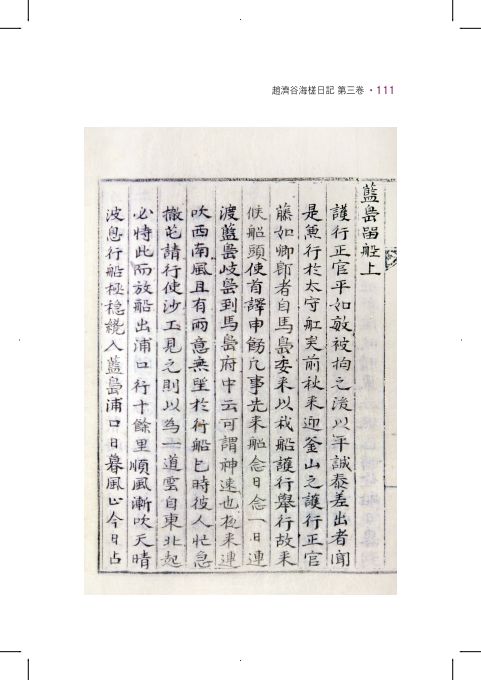 趙濟谷海槎日記 第三卷 • 111
藍島留船上
護行正官平如敏被拘之後以平誠泰差出者聞
是魚行於太守舡矣前秋來迎釜山之護行正官
藤如鄕郞者自馬島委來以我船護行擧行故來
候船頭使首譯申飭凡事先來船念日念一日連
渡藍島岐島到馬島府中云可謂神速也夜來連
吹西南風且有雨意無望於行船巳時彼人忙急
撤芚請行使沙工見之則以為一道雲自東北起
必恃此而放船出浦口行十餘里順風漸吹天晴
波息行船極穩纔入藍島浦口日暮風止今日占